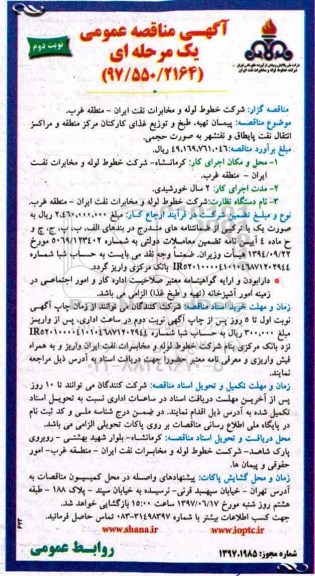 آگهی مناقصه عمومی
یک مرحله ای
(۹۷/۵۵۰/۲۱۶۴)
نوبت دوم
مناقصه گزار: شرکت خطوط لوله و مخابرات نفت ایران - منطقه غرب.
موضوع مناقصه: پیمان تهیه، طبخ و توزیع غذای کارکنان مرکز منطقه و مراکز
انتقال نفت پایطاق و نفتشهر به صورت حجمی.
مبلغ برآورد مناقصه: ۴۹،۱۶۹،۷۶۱،۰۴۶ ریال
۱- محل و مکان اجرای کار: کرمانشاه- شرکت خطوط لوله و مخابرات نفت
ایران - منطقه غرب.
۲- مدت اجرای کار: ۲ سال خورشیدی.
۳- نام دستگاه نظارت: شرکت خطوط لوله و مخابرات نفت ایران - منطقه غرب.
نوع و مبلغ تضمین شرکت در فرآیند ارجاع کار: مبلغ ۲،۴۶۰،۰۰۰،۰۰۰ ریال به
صورت یک یا ترکیبی از ضمانتنامه های مندرج در بندهای الف، ب، پ، ج، چ، ح
ماده ۴ آیین نامه تضمین معاملات دولتی به شماره ۱۲۳۴۰۲/ت۵۰۶۵۹ مورخ
۱۳۹۴/۰۹/۲۲ هیأت وزیران. ضمناً وجه نقد می بایست به حساب شبا شماره
بانک مرکزی واریز گردد.
دارابودن و ارایه گواهینامه معتبر صلاحیت اداره کار و امور اجتماعی در
زمینه امور آشپزخانه (تهیه و طبخ غذا) الزامی می باشد.
زمان و مهلت خرید اسناد مناقصه: شرکت کنندگان می توانند از زمان چاپ آگهی
نوبت اول تا ۵ روز پس از چاپ آگهی نوبت دوم در ساعت اداری، پس از واریز
مبلغ ۳۰۰،۰۰۰ ریال به حساب شبا شماره
نزد بانک مرکزی بنام شرکت خطوط لوله و مخابرات نفت ایران واریز و به همراه
فیش واریزی و معرفی نامه معتبر حضوراً جهت دریافت اسناد به آدرس ذیل مراجعه
نمایند.
زمان و مهلت تکمیل و تحویل اسناد مناقصه: شرکت کنندگان می توانند تا ۱۰ روز
پس از آخرین مهلت دریافت اسناد در ساعات اداری نسبت به تحویل اسناد
تکمیل شده به آدرس ذیل اقدام نمایند. در ضمن درج شناسه ملی و کد ثبت نام
در پایگاه ملی اطلاع رسانی مناقصات بر روی پاکات تحویلی الزامی می باشد.
محل دریافت و تحویل اسناد مناقصه: کرمانشاه- بلوار شهید بهشتی - روبروی
پارک شاهد- شرکت خطوط لوله و مخابرات نفت ایران - منطقه غرب- امور
حقوقی و پیمان ها.
زمان و محل گشایش پاکات: پیشنهادهای واصله در محل کمیسیون مناقصات به
آدرس تهران - خیابان سپهبد قرنی- نرسیده به خیابان سپند - پلاک ۱۸۸ - طبقه
هشتم روز شنبه مورخ ۱۳۹۷/۰۶/۱۷ ساعت ۱۵:۰۰ بازگشایی خواهد شد.
جهت کسب اطلاعات بیشتر با شماره ۳۱۴۹۸۳۹۷-۰۸۳ تماس حاصل فرمائید.
www.shana.ir
www.ioptc.ir
شماره مجوز: ۱۳۹۷،۱۹۸۵
روابط عمومی